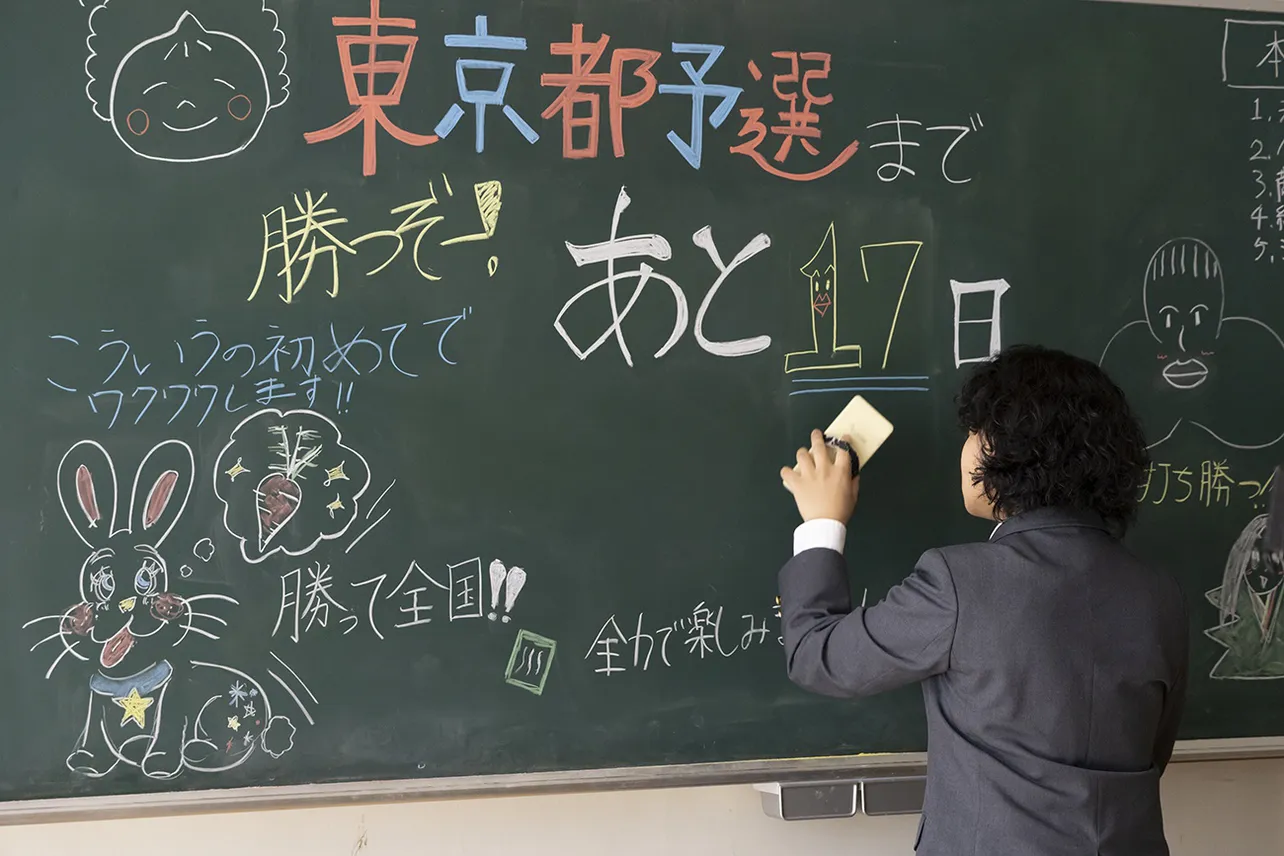 東京都予選まで
勝つぞ!
あと17日
こういうの初めてで
ワクワクします!!
勝って全国!!
全力で楽しみ
打ち勝つ
本
1.
2.
3.
4.
5.